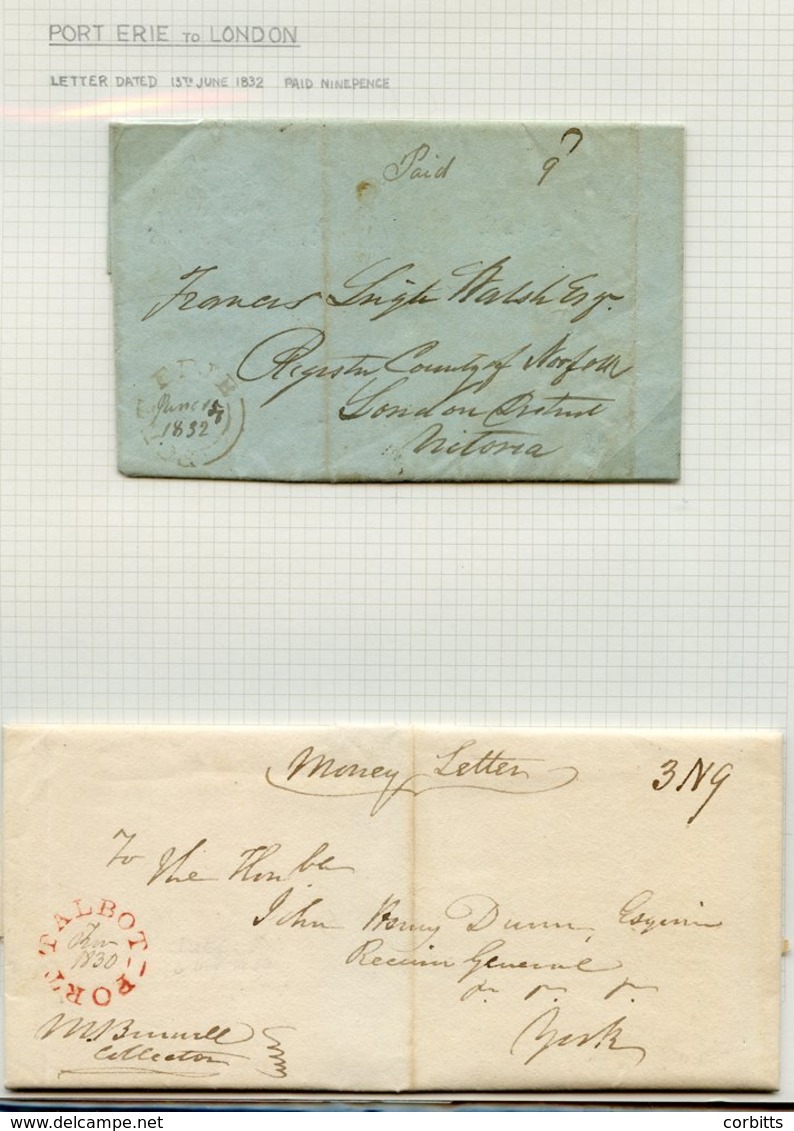 PORT ERIE TO LONDON
LETTER DATED 15TH JUNE 1832 PAID NINEPENCE
Paid 9
Francis Leigh Walsh Esqr
Register County of Norfolk
London District
Vittoria
ERIE
June 15
1832
Money Letter 3 N 9
To
The Honble
John Henry Dunn, Esquire
Receiver General
York
PORT TALBOT
1830
M Burwell
Collector
www.delcampe.net
corbitts